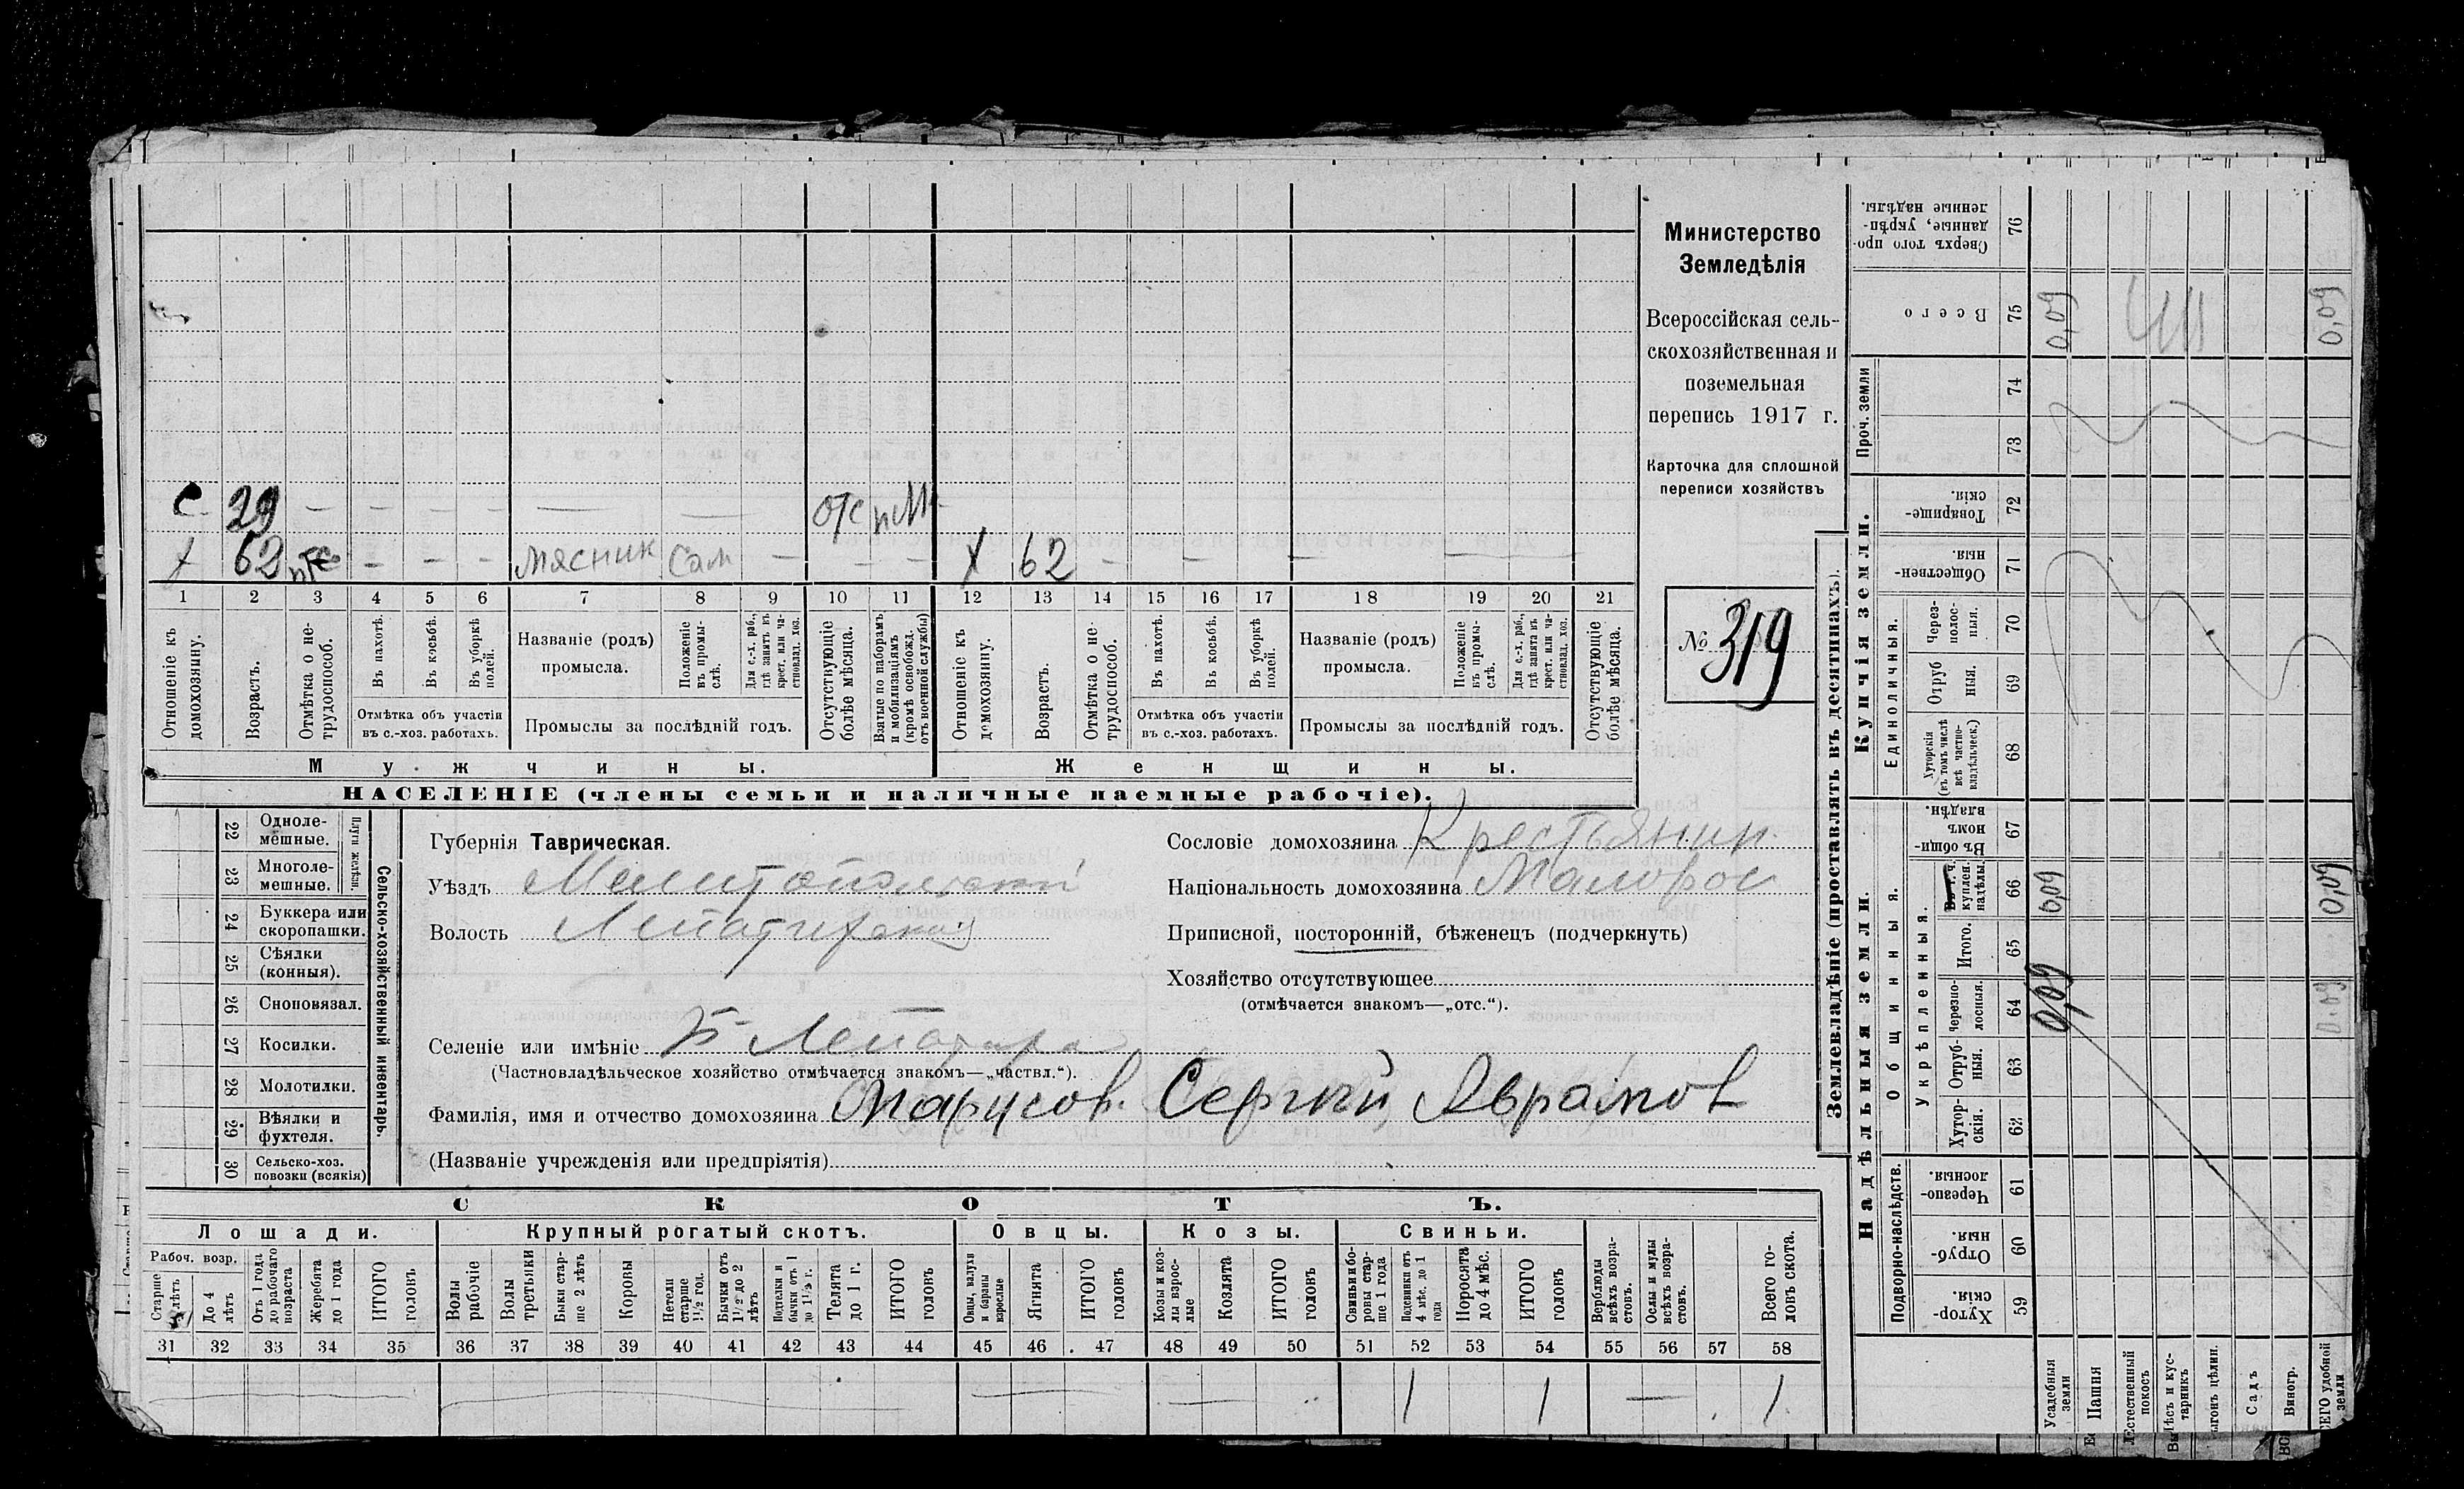 Министерство
Земледѣлія
Всероссійская сель-
скохозяйственная и
поземельная
перепись 1917 г.
Карточка для сплошной
переписи хозяйствъ
№ 319
С 29 — — — — — — отс
х 62 — — — мясник сам — — — х 62 — — — — —
1 2 3 4 5 6 7 8 9 10 11 12 13 14 15 16 17 18 19 20 21
Отношеніе къ домохозяину.
Возрастъ.
Отмѣтка о не-трудоспособ.
Въ пахотѣ.
Въ косьбѣ.
Въ уборкѣ полей.
Отмѣтка объ участіи
въ с.-хоз. работахъ.
Названіе (родъ)
промысла.
Положеніе въ промы-слѣ.
Для с.-х. раб., гдѣ занятъ въ крест. или ча-стновлад. хоз.
Промыслы за послѣдній годъ.
Отсутствующіе болѣе мѣсяца.
Взятые по наборамъ и мобилизаціямъ (кромѣ освобожд. отъ военной службы)
Отношеніе къ домохозяину.
Возрастъ.
Отмѣтка о не-трудоспособ.
Въ пахотѣ.
Въ косьбѣ.
Въ уборкѣ полей.
Отмѣтка объ участіи
въ с.-хоз. работахъ.
Названіе (родъ)
промысла.
Положеніе въ промы-слѣ.
Для с.-х. раб., гдѣ занятъ въ крест. или ча-стновлад. хоз.
Промыслы за послѣдній годъ.
Отсутствующіе болѣе мѣсяца.
Мужчины.
Женщины.
НАСЕЛЕНІЕ (члены семьи и наличные наемные рабочіе).
22 Однолемешные.
23 Многолемешные.
Плуги желѣзн.
24 Буккера или скоропашки.
25 Сѣялки (конныя).
26 Сноповязал.
27 Косилки.
28 Молотилки.
29 Вѣялки и фухтеля.
30 Сельско-хоз. повозки (всякія)
Сельско-хозяйственный инвентарь.
Губернія Таврическая.
Уѣздъ Мелитопольский
Волость Лепатихская
Селеніе или имѣніе Б Лепатиха
(Частновладѣльческое хозяйство отмѣчается знакомъ—„частвл.“).
Фамилія, имя и отчество домохозяина Марусов Сергий Аврамов
(Названіе учрежденія или предпріятія)
Сословіе домохозяина Крестьянин
Національность домохозяина Малорос
Приписной, посторонній, бѣженецъ (подчеркнуть)
Хозяйство отсутствующее
(отмѣчается знакомъ—„отс.“).
СКОТЪ.
Лошади. Крупный рогатый скотъ. Овцы. Козы. Свиньи.
Рабоч. возр.
Старше лѣтъ
До 4 лѣтъ
Отъ 1 года до рабочаго возраста
Жеребята до 1 года
ИТОГО головъ
Волы рабочіе
Волы третьяки
Быки стар-ше 2 лѣтъ
Коровы
Нетели старше 1½ год.
Бычки отъ 1½ до 2 лѣтъ
Подтелки и бычки отъ 1 до 1½ г.
Телята до 1 г.
ИТОГО головъ
Овцы, валухи и бараны взрослые
Ягнята
ИТОГО головъ
Козы и коз-лы взрос-лые
Козлята
ИТОГО головъ
Свиньи и бо-ровы стар-ше 1 года
Подсвинки отъ 4 мѣс. до 1 года
Поросята до 4 мѣс.
ИТОГО головъ
Верблюды всѣхъ возра-стовъ.
Ослы и мулы всѣхъ возра-стовъ.
Всего го-ловъ скота.
31 32 33 34 35 36 37 38 39 40 41 42 43 44 45 46 47 48 49 50 51 52 53 54 55 56 57 58
1 1 — 1
Землевладѣніе (проставлять въ десятинахъ).
Надѣльныя земли.
Купчія земли.
Проч. земли
Подворно-наслѣдств.
Общинныя.
Укрѣпленныя.
Единоличныя.
Хутор-скія. 59
Отруб-ныя. 60
Черезпо-лосныя. 61
Хутор-скія. 62
Отруб-ныя. 63
Черезпо-лосныя. 64
Итого. 65
В т. ч. куплен. надѣлы. 66
Въ общи-номъ владѣн. 67
Хуторскія (въ томъ числѣ всѣ частно-владѣльческ.) 68
Отруб ныя. 69
Через-полос-ныя. 70
Обществен-ныя. 71
Товарище-скія. 72
73
74
Всего 75
Сверхъ того про-данные, укрѣп-ленные надѣлы. 76
Усадебныя земли
0,09 0,09 0,09
Пашня
Естественный покосъ
Лѣсъ и кус-тарникъ
Выгонъ цѣлин.
Садъ
Виногр.
ВСЕГО удобной земли
0,09 0,09 0,09